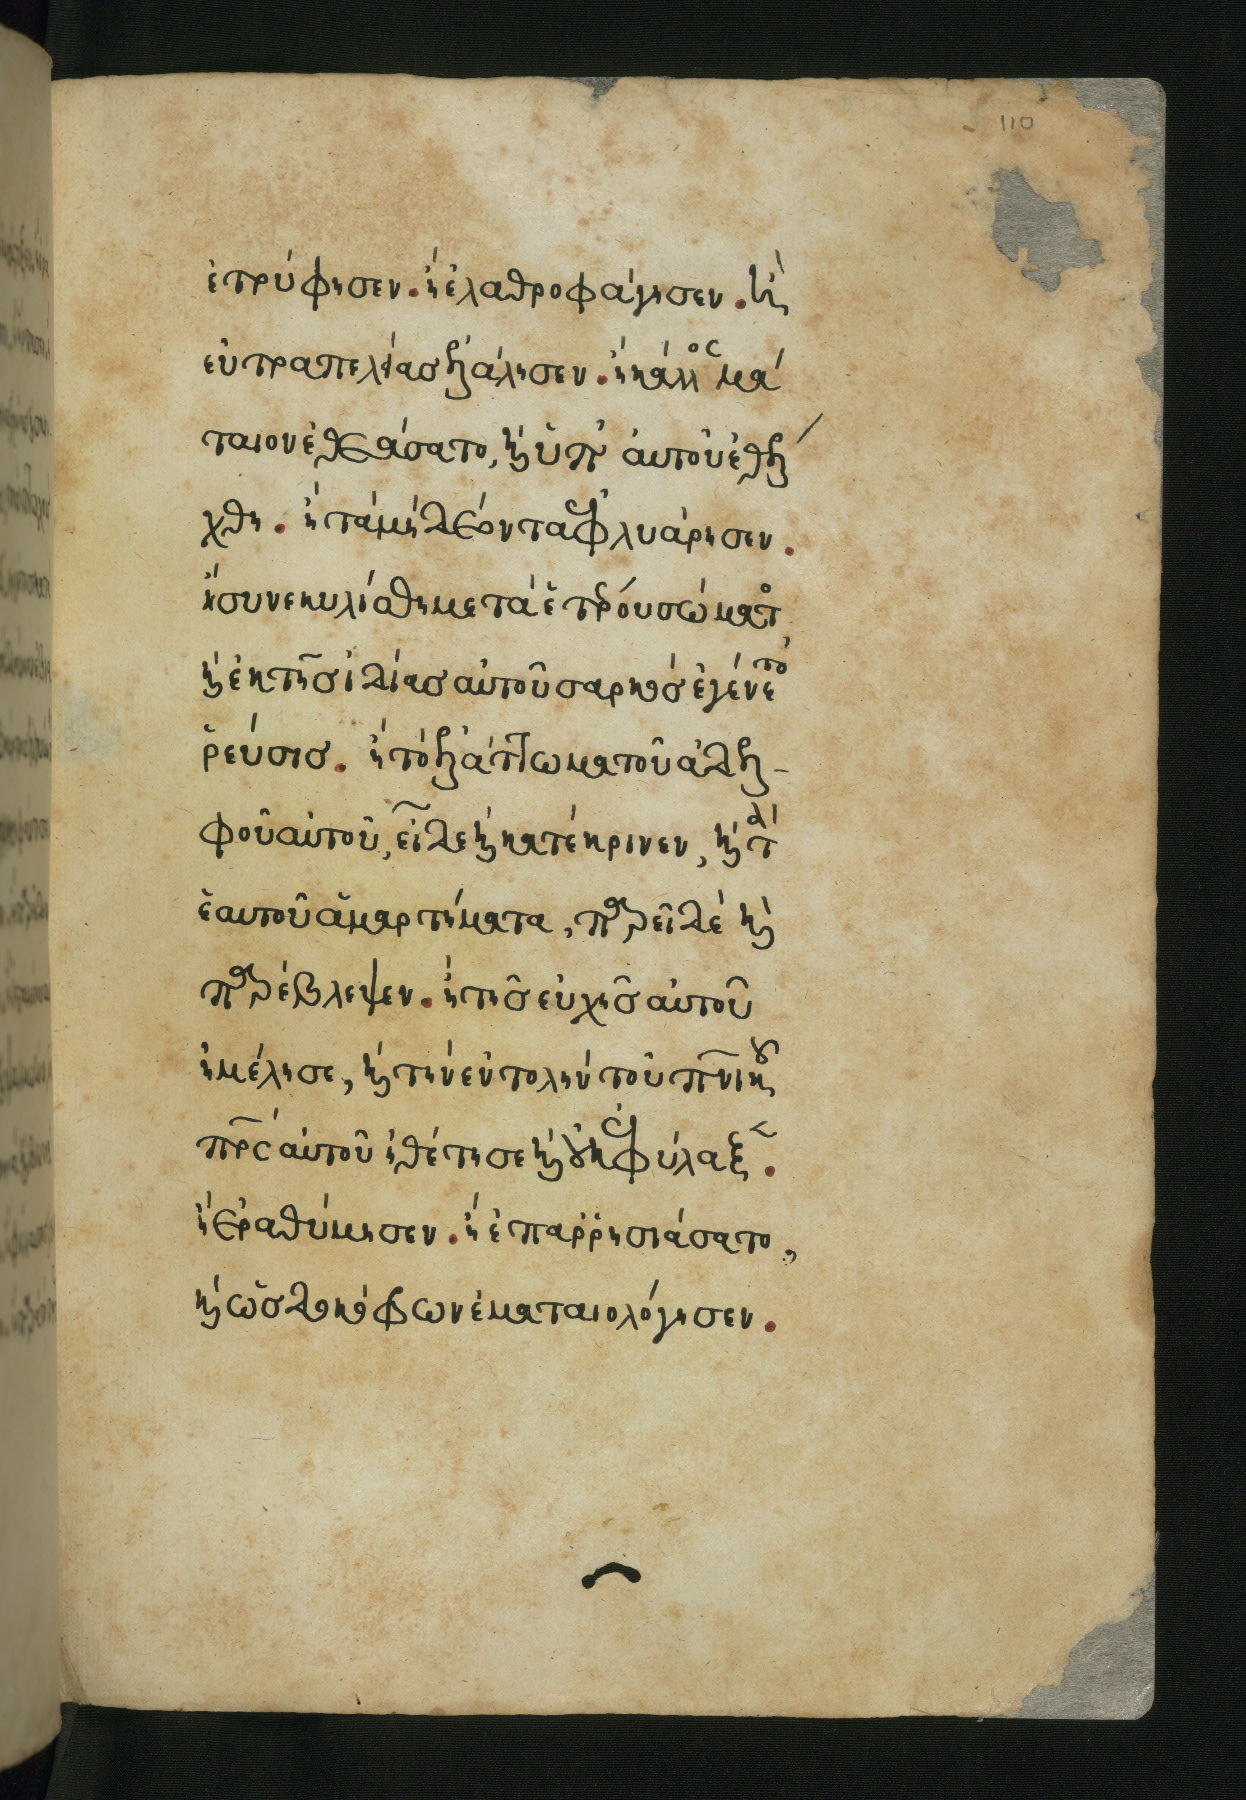 110
ἐτρύφησεν. ἢ ἐλαθροφάγησεν. ἢ
εὐτραπελίας ἐλάλησεν. ἢ κάλλος μά
ταιον ἐθεάσατο, καὶ ὑπ' αὐτοῦ ἐθέλ
χθη. ἢ τὰ μὴ δέοντα ἐφλυάρησεν.
ἢ συνεκυλίσθη μετὰ ἑτέρου σώματος,
καὶ ἐκ τῆς ἰδίας αὐτοῦ σαρκὸς ἐγένετο
ῥεύσις. ἢ τὸ ἐλάττωμα τοῦ ἀδελ-
φοῦ αὐτοῦ, εἶδε καὶ κατέκρινεν, καὶ τὰ
ἑαυτοῦ ἁμαρτήματα, παρεῖδε καὶ
παρέβλεψεν. ἢ τῆς εὐχῆς αὐτοῦ
ἠμέλησε, καὶ τὴν ἐντολὴν τοῦ πνικοῦ
πρς αὐτοῦ ἠθέτησε καὶ οὐκ ἐφύλαξεν.
ἢ ἐραθύμησεν. ἢ ἐπαῤῥησιάσατο,
καὶ ὡς δοκόφων ἐματαιολόγησεν.